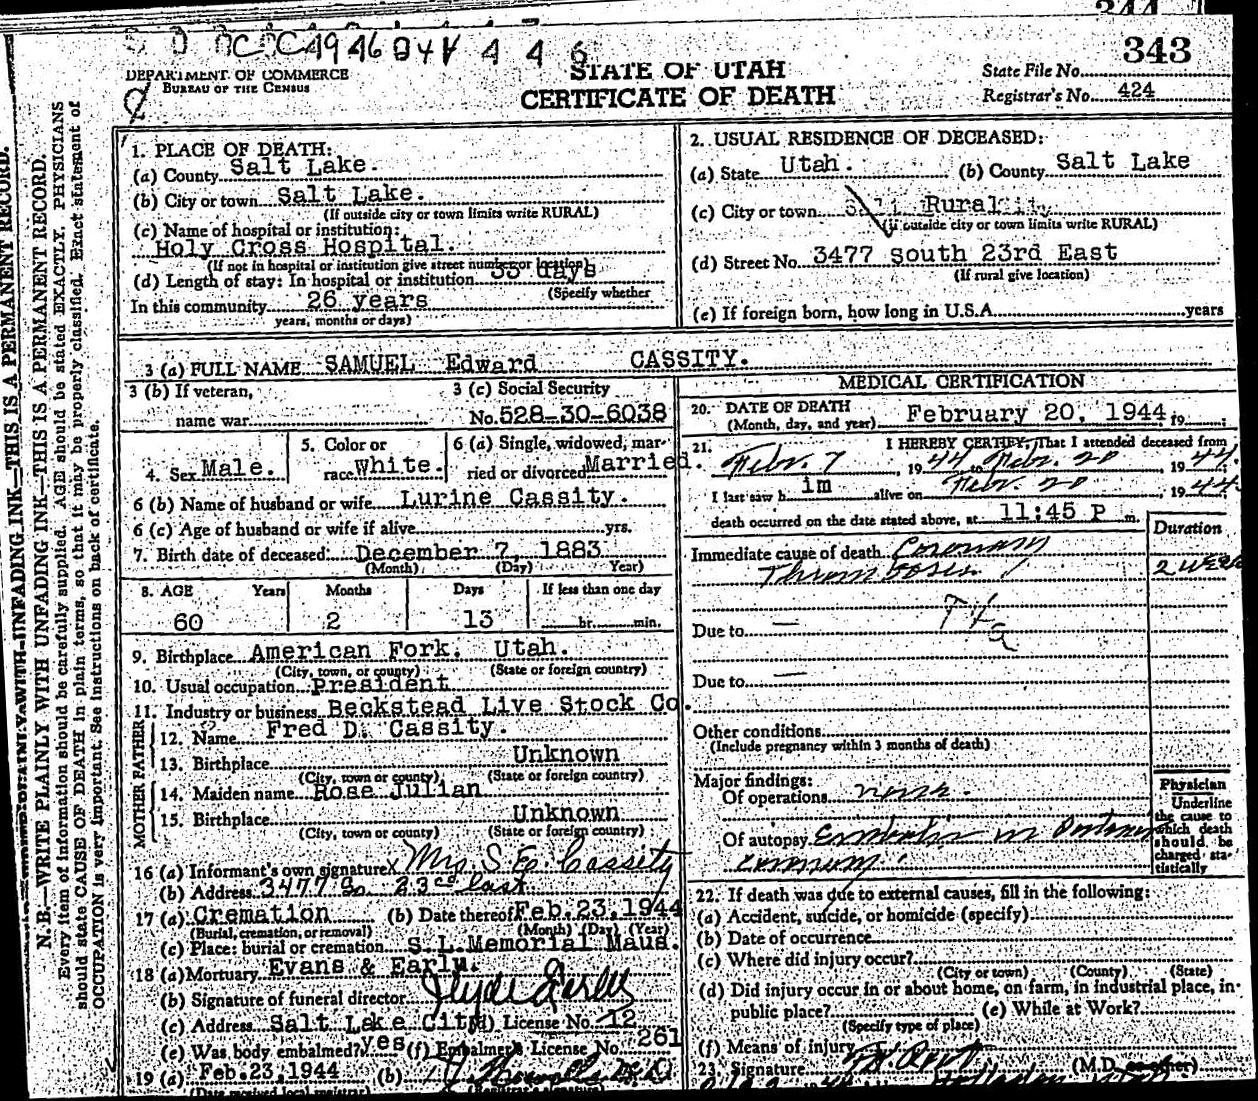 344
343
DEPARTMENT OF COMMERCE
BUREAU OF THE CENSUS
STATE OF UTAH
CERTIFICATE OF DEATH
State File No.
Registrar's No. 424
N. B.—WRITE PLAINLY WITH UNFADING INK—THIS IS A PERMANENT RECORD.
Every item of information should be carefully supplied. AGE should be stated EXACTLY. PHYSICIANS
should state CAUSE OF DEATH in plain terms, so that it may be properly classified. Exact statement of
OCCUPATION is very important. See instructions on back of certificate.
1. PLACE OF DEATH:
(a) County Salt Lake.
(b) City or town Salt Lake.
(If outside city or town limits write RURAL)
(c) Name of hospital or institution:
Holy Cross Hospital.
(If not in hospital or institution give street number or location)
(d) Length of stay: In hospital or institution 33 days
(Specify whether
In this community 26 years
years, months or days)
2. USUAL RESIDENCE OF DECEASED:
(a) State Utah. (b) County Salt Lake
(c) City or town Rural
(If outside city or town limits write RURAL)
(d) Street No. 3477 South 23rd East
(If rural give location)
(e) If foreign born, how long in U.S.A. years
3 (a) FULL NAME SAMUEL Edward CASSITY.
3 (b) If veteran,
name war
3 (c) Social Security
No. 528-30-6038
4. Sex Male.
5. Color or
race White.
6 (a) Single, widowed, mar-
ried or divorced Married.
6 (b) Name of husband or wife Lurine Cassity.
6 (c) Age of husband or wife if alive yrs.
7. Birth date of deceased: December 7, 1883
(Month) (Day) Year)
8. AGE Years Months Days If less than one day
60 2 13 hr. min.
9. Birthplace American Fork. Utah.
(City, town, or county) (State or foreign country)
10. Usual occupation President
11. Industry or business Beckstead Live Stock Co.
FATHER
12. Name Fred D. Cassity.
13. Birthplace Unknown
(City, town or county) (State or foreign country)
MOTHER
14. Maiden name Rose Julian
15. Birthplace Unknown
(City, town or county) (State or foreign country)
16 (a) Informant's own signature x Mrs. S. E. Cassity
(b) Address 3477 So. 23rd East
17 (a) Cremation (b) Date thereof Feb. 23, 1944
(Burial, cremation, or removal) (Month) (Day) (Year)
(c) Place: burial or cremation S. L. Memorial Maus.
18 (a) Mortuary Evans & Early.
(b) Signature of funeral director
(c) Address Salt Lake City (d) License No. 12
(e) Was body embalmed? yes (f) Embalmer's License No. 261
19 (a) Feb. 23, 1944 (b)
(Date received local registrar) (Registrar's signature)
MEDICAL CERTIFICATION
20. DATE OF DEATH
(Month, day, and year) February 20, 1944, 19
21. I HEREBY CERTIFY, That I attended deceased from
Febr. 7, 1944 to Febr. 20, 1944.
I last saw him alive on Febr. 20, 1944
death occurred on the date stated above, at 11:45 P m.
Duration
Immediate cause of death Coronary
Thrombosis 2 weeks
Due to —
Due to —
Other conditions
(Include pregnancy within 3 months of death)
Major findings:
Of operations none.
Of autopsy
coronary.
Physician
Underline
the cause to
which death
should be
charged sta-
tistically
22. If death was due to external causes, fill in the following:
(a) Accident, suicide, or homicide (specify)
(b) Date of occurrence
(c) Where did injury occur?
(City or town) (County) (State)
(d) Did injury occur in or about home, on farm, in industrial place, in-
public place? (e) While at Work?
(Specify type of place)
(f) Means of injury
23. Signature (M.D. or other)